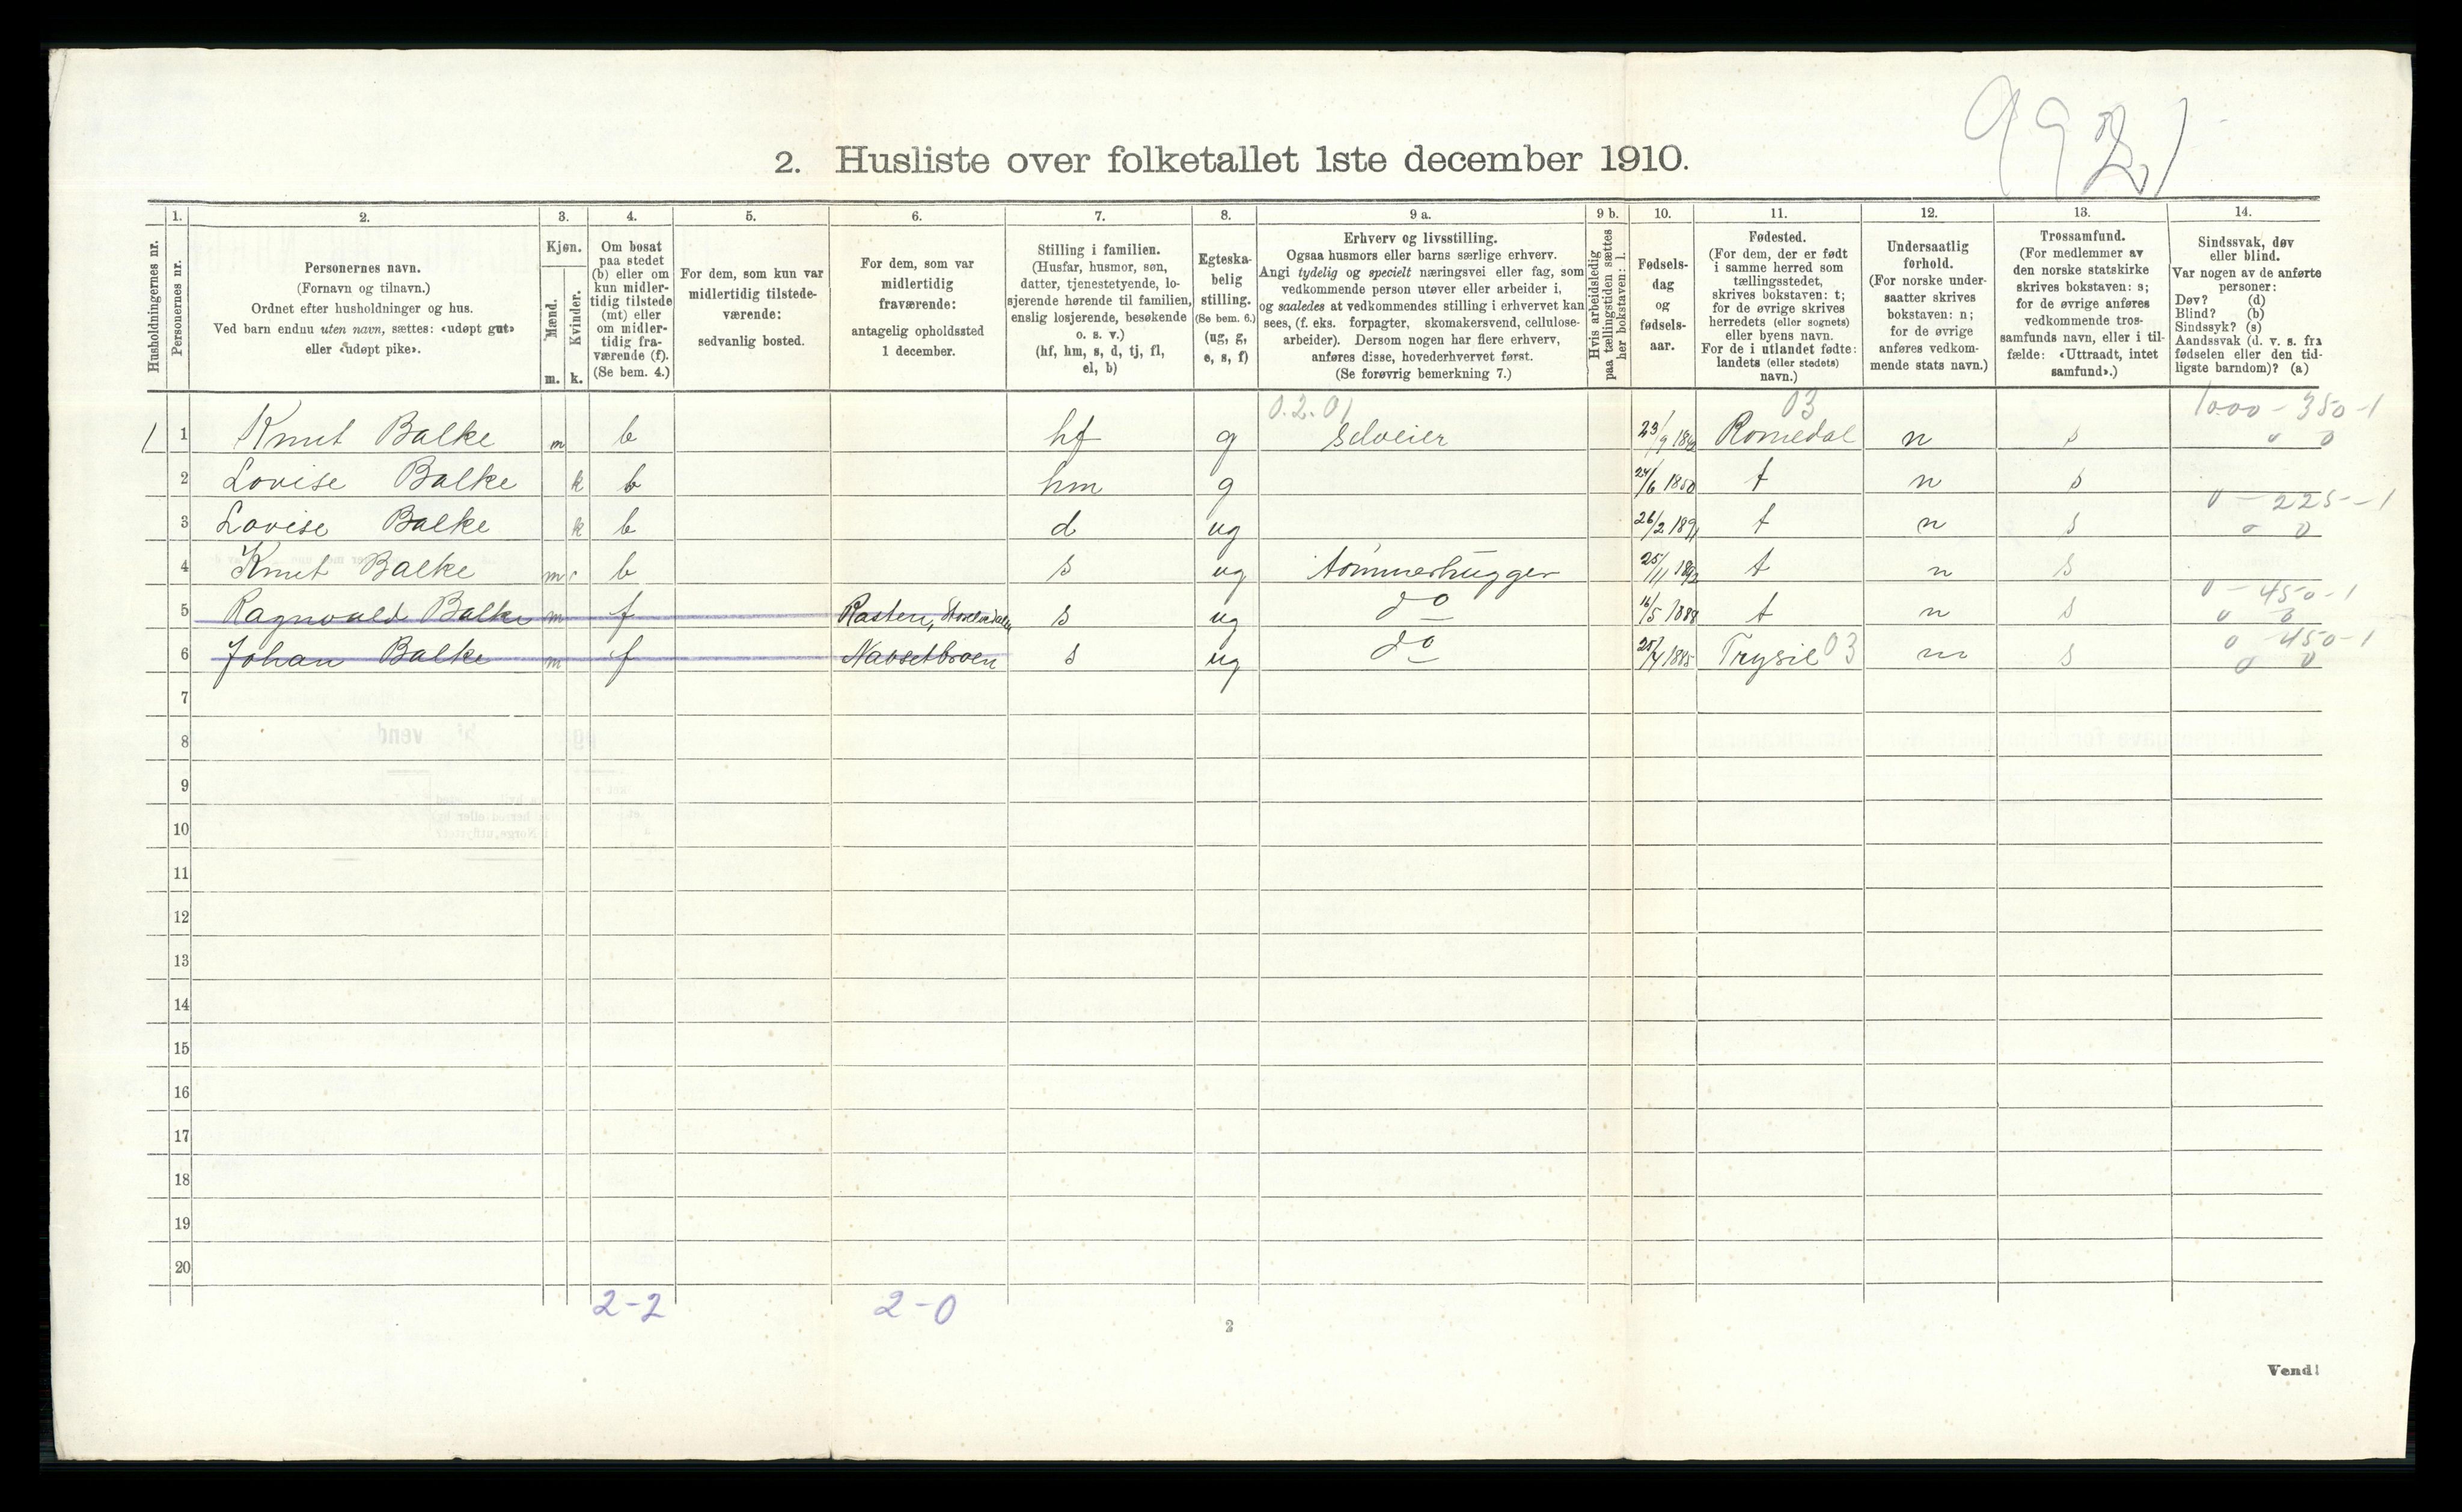 2. Husliste over folketallet 1ste december 1910.
1. 2. 3. 4. 5. 6. 7. 8. 9 a. 9 b. 10. 11. 12. 13. 14.
Husholdningernes nr.
Personernes nr.
Personernes navn.
(Fornavn og tilnavn.)
Ordnet efter husholdninger og hus.
Ved barn endnu uten navn, sættes: «udøpt gut»
eller «udøpt pike».
Kjøn.
Mænd.
Kvinder.
m. k.
Om bosat
paa stedet
(b) eller om
kun midler-
tidig tilstede
(mt) eller
om midler-
tidig fra-
værende (f).
(Se bem. 4.)
For dem, som kun var
midlertidig tilstede-
værende:
sedvanlig bosted.
For dem, som var
midlertidig
fraværende:
antagelig opholdssted
1 december.
Stilling i familien.
(Husfar, husmor, søn,
datter, tjenestetyende, lo-
sjerende hørende til familien,
enslig losjerende, besøkende
o. s. v.)
(hf, hm, s, d, tj, fl,
el, b)
Egteska-
belig
stilling.
(Se bem. 6.)
(ug, g,
e, s, f)
Erhverv og livsstilling.
Ogsaa husmors eller barns særlige erhverv.
Angi tydelig og specielt næringsvei eller fag, som
vedkommende person utøver eller arbeider i,
og saaledes at vedkommendes stilling i erhvervet kan
sees, (f. eks. forpagter, skomakersvend, cellulose-
arbeider). Dersom nogen har flere erhverv,
anføres disse, hovederhvervet først.
(Se forøvrig bemerkning 7.)
Hvis arbeidsledig
paa tællingstiden sættes
her bokstaven: l.
Fødsels-
dag
og
fødsels-
aar.
Fødested.
(For dem, der er født
i samme herred som
tællingsstedet,
skrives bokstaven: t;
for de øvrige skrives
herredets (eller sognets)
eller byens navn.
For de i utlandet fødte:
landets (eller stedets)
navn.)
Undersaatlig
forhold.
(For norske under-
saatter skrives
bokstaven: n;
for de øvrige
anføres vedkom-
mende stats navn.)
Trossamfund.
(For medlemmer av
den norske statskirke
skrives bokstaven: s;
for de øvrige anføres
vedkommende tros-
samfunds navn, eller i til-
fælde: «Uttraadt, intet
samfund».)
Sindssvak, døv
eller blind.
Var nogen av de anførte
personer:
Døv? (d)
Blind? (b)
Sindssyk? (s)
Aandssvak (d. v. s. fra
fødselen eller den tid-
ligste barndom)? (a)
0.2.01 03 1000-350-1
1 1 Knut Balke m b hf g selveier Romedal n s 0 0
2 Lovise Balke k b hm g 24/6 1850 t n s
0-225-1
3 Lovise Balke k b d ug 26/2 1891 t n s 0 0
4 Knut Balke m b s ug tømmerhugger 25/11 1892 t n s
0-450-1
5 Ragnvald Balke m f s ug do 16/5 1888 t n s 0 0
0 450-1
6 Johan Balke m f s ug do 1885 Trysil 03 n s 0 0
7
8
9
10
11
12
13
14
15
16
17
18
19
20
2-2 2-0
2
Vend!